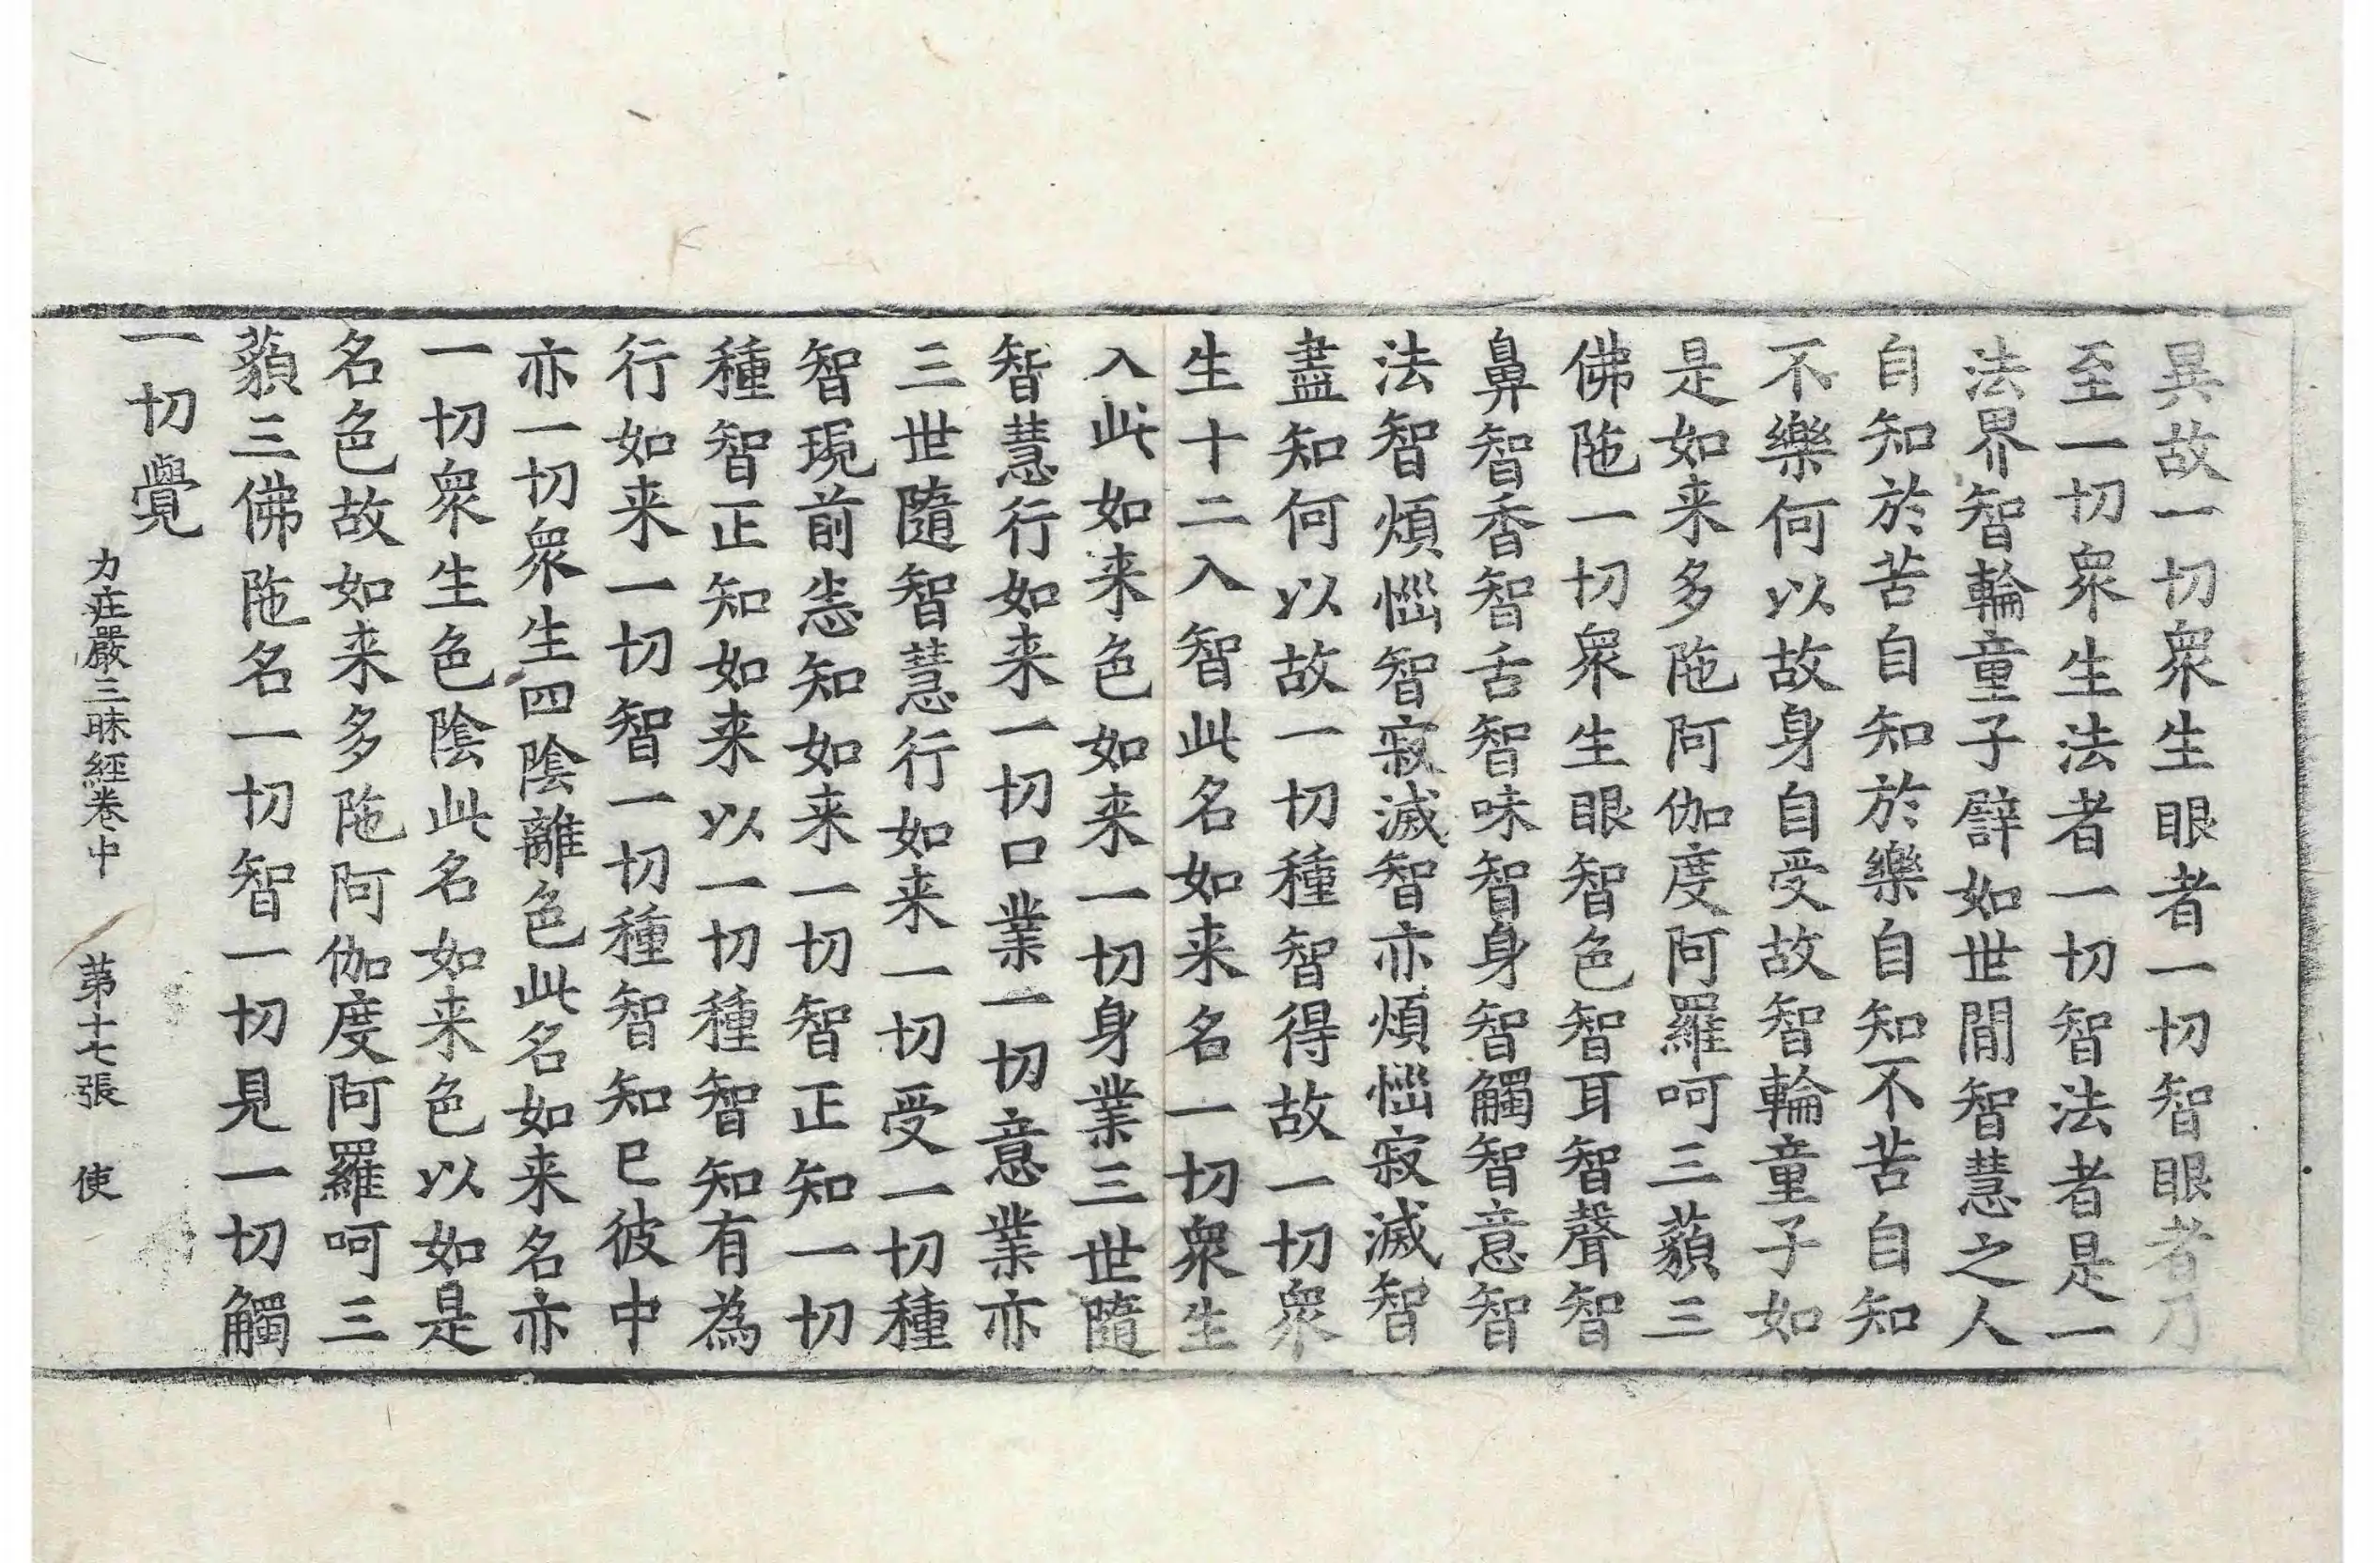 異故一切衆生眼者一切智眼者乃
至一切衆生法者一切智法者是一
法界智輪童子譬如世間智慧之人
自知於苦自知於樂自知不苦自知
不樂何以故身自受故智輪童子如
是如来多陁阿伽度阿羅呵三藐三
佛陁一切衆生眼智色智耳智聲智
鼻智香智舌智味智身智觸智意智
法智煩惱智寂滅智亦煩惱寂滅智
盡知何以故一切種智得故一切衆
生十二入智此名如来名一切衆生
入此如来色如来一切身業三世隨
智慧行如来一切口業一切意業亦
三世隨智慧行如来一切受一切種
智現前悉知如来一切智正知一切
種智正知如来以一切種智知有為
行如来一切智一切種智知已彼中
亦一切衆生四陰離色此名如来名亦
一切衆生色陰此名如来色以如是
名色故如来多陁阿伽度阿羅呵三
藐三佛陁名一切智一切見一切觸
一切覺
力庄嚴三昧經卷中 第十七張 使